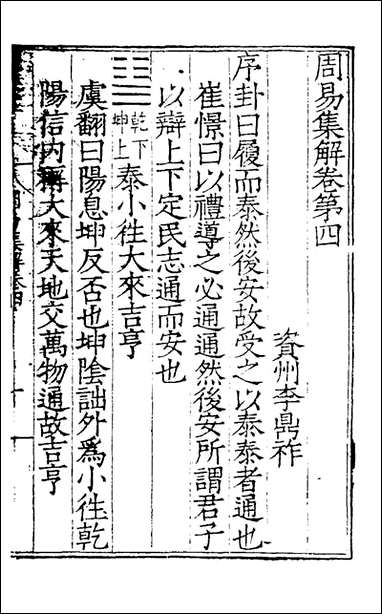 周易集解卷第四
資州李鼎祚
序卦曰履而泰然後安故受之以泰泰者通也
崔憬曰以禮導之必通通然後安所謂君子
以辯上下定民志通而安也
乾下
坤上
泰小徃大來吉亨
虞翻曰陽息坤反否也坤陰詘外爲小徃乾
陽信内稱大來天地交萬物通故吉亨